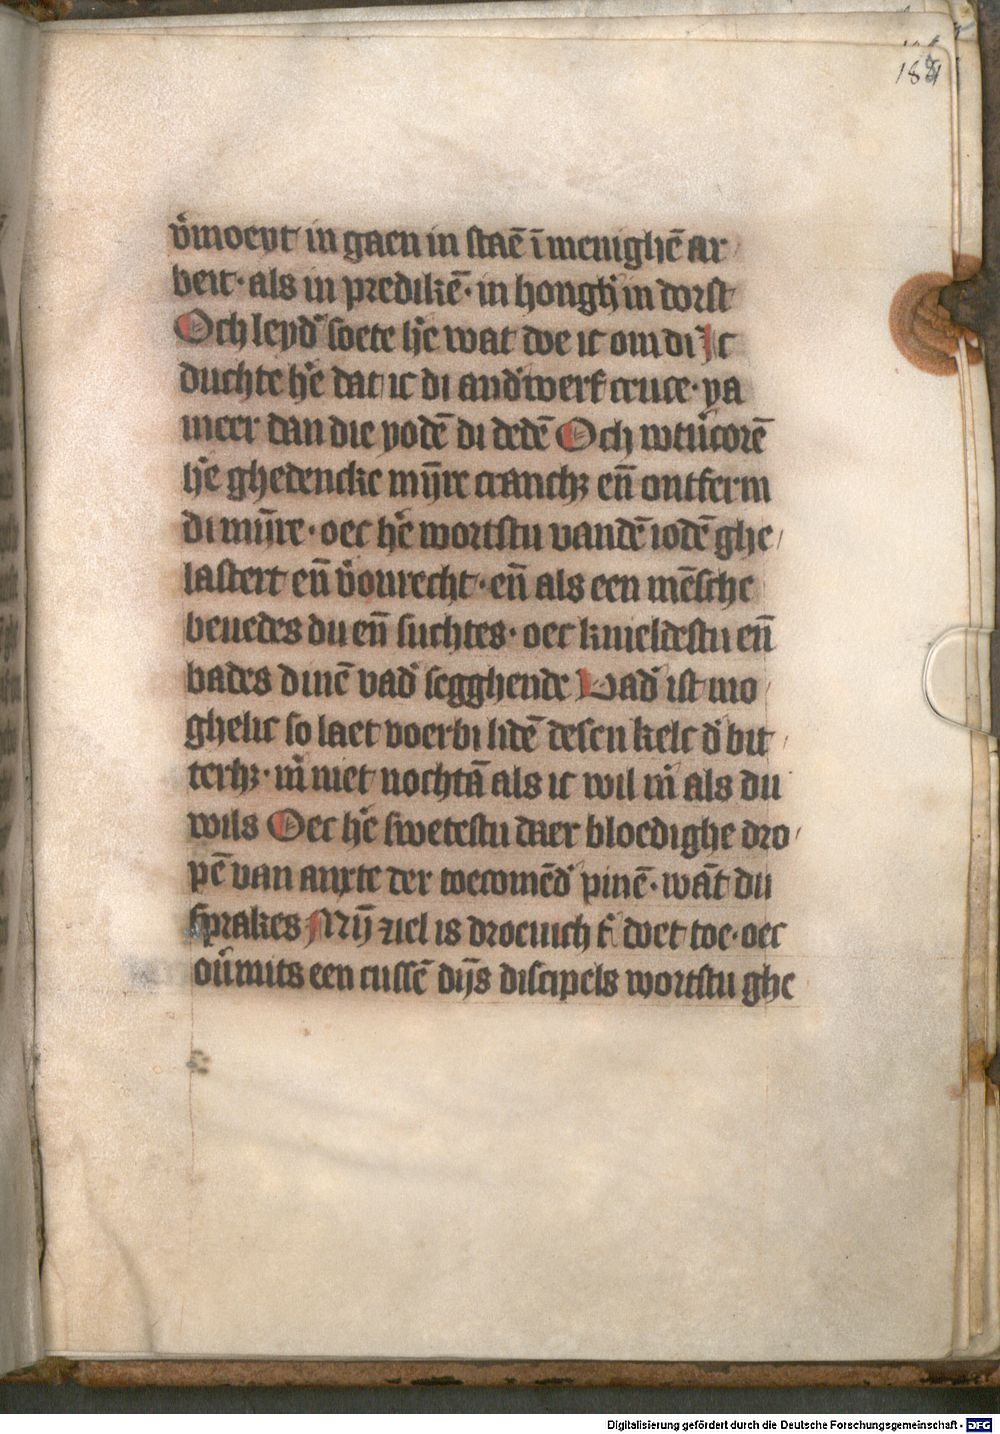 181
v̉moeyt in gaen in staē ī menighē ar
beit· als in predikē· in hongh̉ in dorst
Och leyd̉ soete h̉e wat doe ic om di Jc
duchte h̉e dat ic di and̉werf cruce· ya
meer dan die yodē di dedē Och wtu̓corē
h̉e ghedencke mỹre cranchꝫ eñ ontferm
di mỹre· oec h̉e wortstu vandē iodē ghe
lastert eñ v̉ourecht· eñ als een mēsche
beuedes du eñ suchtes· oec knieldestu eñ
bades dinē vad̉ segghende Vad̉ ist mo
ghelic so laet voerbi lidē desen kelc d̉ bit
terhꝫ· m̉ niet nochtā als ic wil m̉ als du
wils Oec h̉e swetestu daer bloedighe dro
pē van anxte der toecomēd̉ pinē· wāt du
sprakes Mỹ ziel is droeuich t̉ doet toe· oec
ou̓mits een cussē dijs discipels wortstu ghe
Digitalisierung gefördert durch die Deutsche Forschungsgemeinschaft - DFG